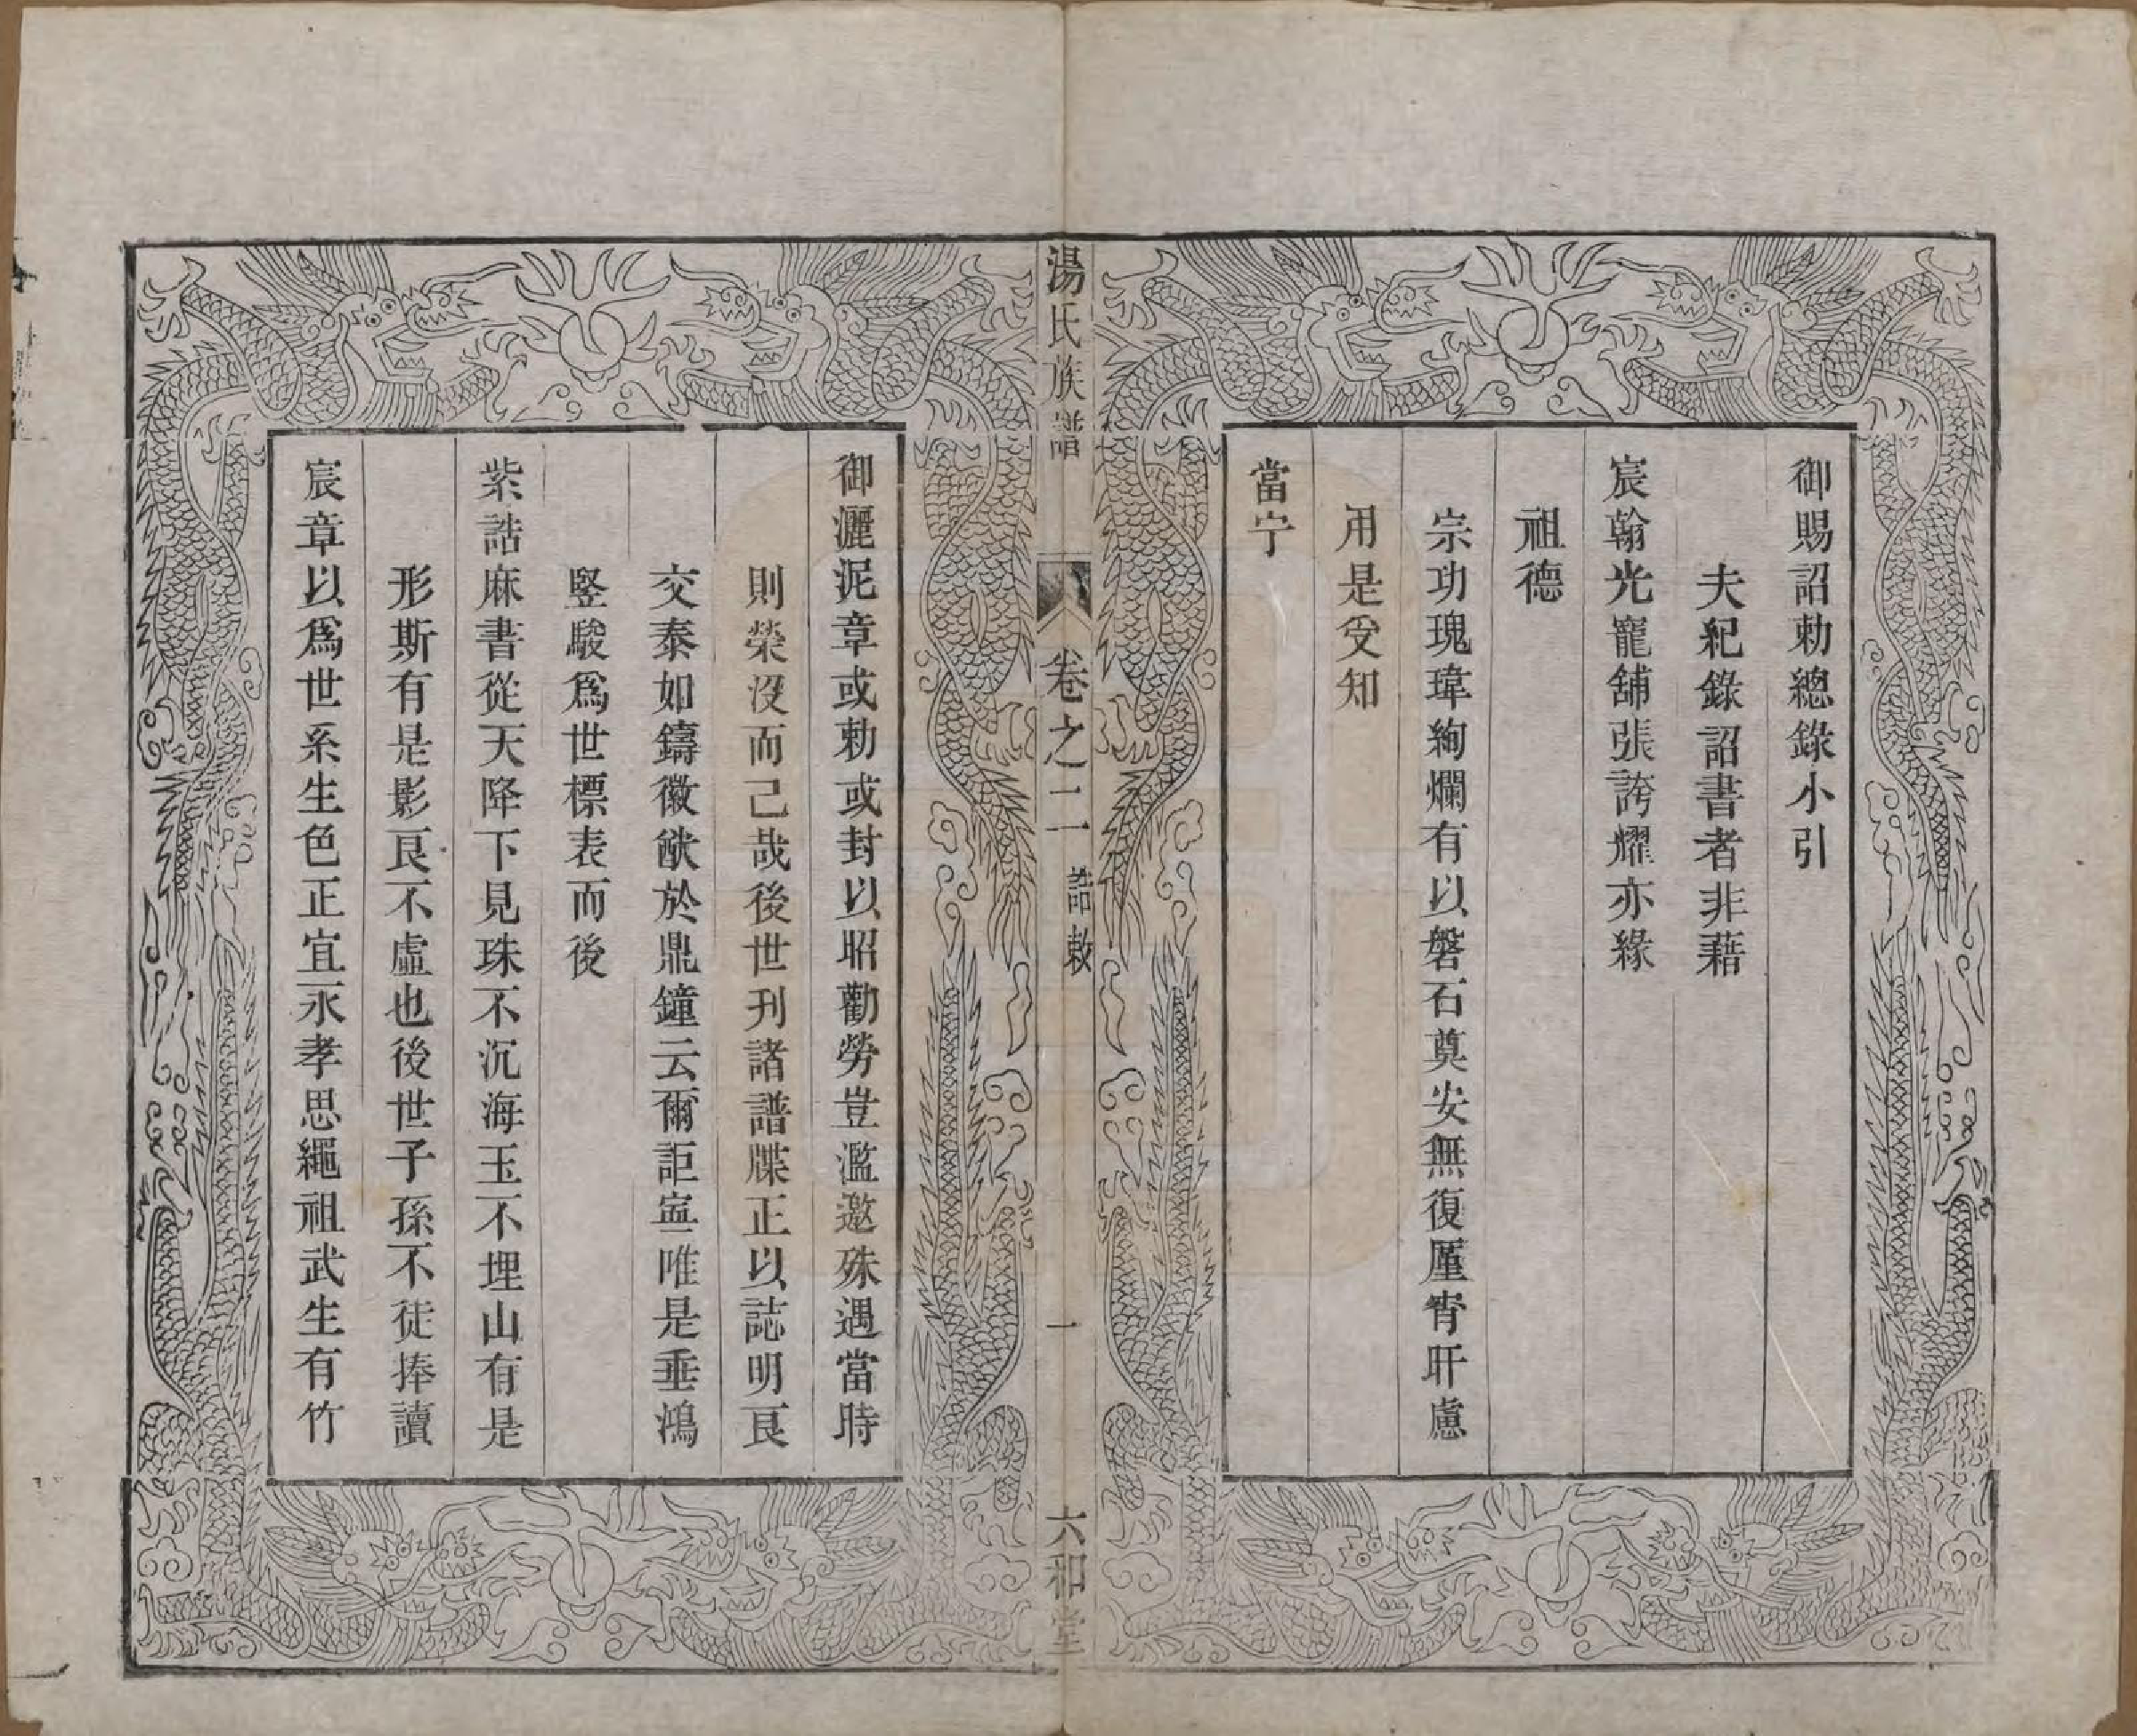 御賜詔勅總錄小引
夫紀錄詔書者非藉
宸翰光寵舖張誇耀亦緣
祖德
宗功瑰瑋絢爛有以磐石奠安無復厪宵旰慮
用是受知
當宁
湯氏族譜
卷之二
誥敕
一
六和堂
御灑泥章或勅或封以昭勸勞豈濫邀殊遇當時
則榮沒而已哉後世刋諸譜牒正以誌明良
交泰如鑄徽猷於鼎鐘云爾詎寍唯是垂鴻
竪駿爲世標表而後
紫誥麻書從天降下見珠不沉海玉不埋山有是
形斯有是影良不虛也後世子孫不徒捧讀
宸章以爲世系生色正宜永孝思繩祖武生有竹